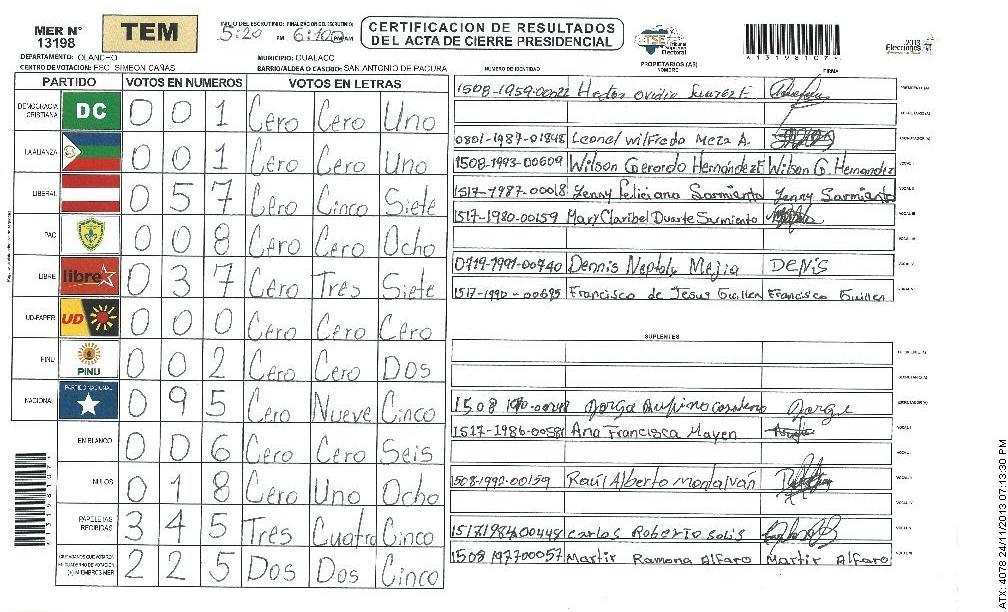 MER N° 13198
TEM
INICIO DEL ESCRUTINIO: FINALIZACION DEL ESCRUTINIO:
5:20 PM 6:10
CERTIFICACION DE RESULTADOS
DEL ACTA DE CIERRE PRESIDENCIAL
TSE Tribunal Supremo Electoral
*13198107*
2013 Elecciones
DEPARTAMENTO: OLANCHO MUNICIPIO: GUALACO
CENTRO DE VOTACION: ESC. SIMEON CAÑAS BARRIO/ALDEA O CASERIO: SAN ANTONIO DE PACURA
PARTIDO VOTOS EN NUMEROS VOTOS EN LETRAS
DEMOCRACIA CRISTIANA DC 0 0 1 Cero Cero Uno
LA ALIANZA 0 0 1 Cero Cero Uno
LIBERAL 0 5 7 Cero Cinco Siete
PAC 0 0 8 Cero Cero Ocho
LIBRE libre 0 3 7 Cero Tres Siete
UD-FAPER UD 0 0 0 Cero Cero Cero
PINU PINU 0 0 2 Cero Cero Dos
NACIONAL PARTIDO NACIONAL 0 9 5 Cero Nueve Cinco
EN BLANCO 0 0 6 Cero Cero Seis
NULOS 0 1 8 Cero Uno Ocho
PAPELETAS RECIBIDAS 3 4 5 Tres Cuatro Cinco
CIUDADANOS QUE VOTARON EN CUADERNO DE VOTACION (+) MIEMBROS MER 2 2 5 Dos Dos Cinco
NUMERO DE IDENTIDAD PROPIETARIOS (AS) NOMBRE FIRMA
1508-1959-00022 Hector Ovidio Suarez E PRESIDENTE(A)
SECRETARIO(A)
0801-1987-01848 Leonel Wilfredo Meza A. ESCRUTADOR(A)
1508-1993-00609 Wilson Gerardo Hernández E Wilson G. Hernandez VOCAL I
1517-1987-00018 Yenny Feliciana Sarmiento Yenny Sarmiento VOCAL II
1517-1980-00159 Mary Claribel Duarte Sarmiento VOCAL III
VOCAL IV
0719-1991-00740 Dennis Neptaly Mejia DENIS VOCAL V
1517-1990-00695 Francisco de Jesus Guillen Francisco Guillen
SUPLENTES
PRESIDENTE(A)
SECRETARIO(A)
Jorge ESCRUTADOR(A)
1517-1986-00581 Ana Francisca Mayen VOCAL I
1508-1990-00159 Raúl Alberto Montalván
Carlos Roberto Solis
1508 1977 00057 Martir Ramona Alfaro Martir Alfaro
*13198107*
ATX: 4078 24/11/2013 07:13:30 PM